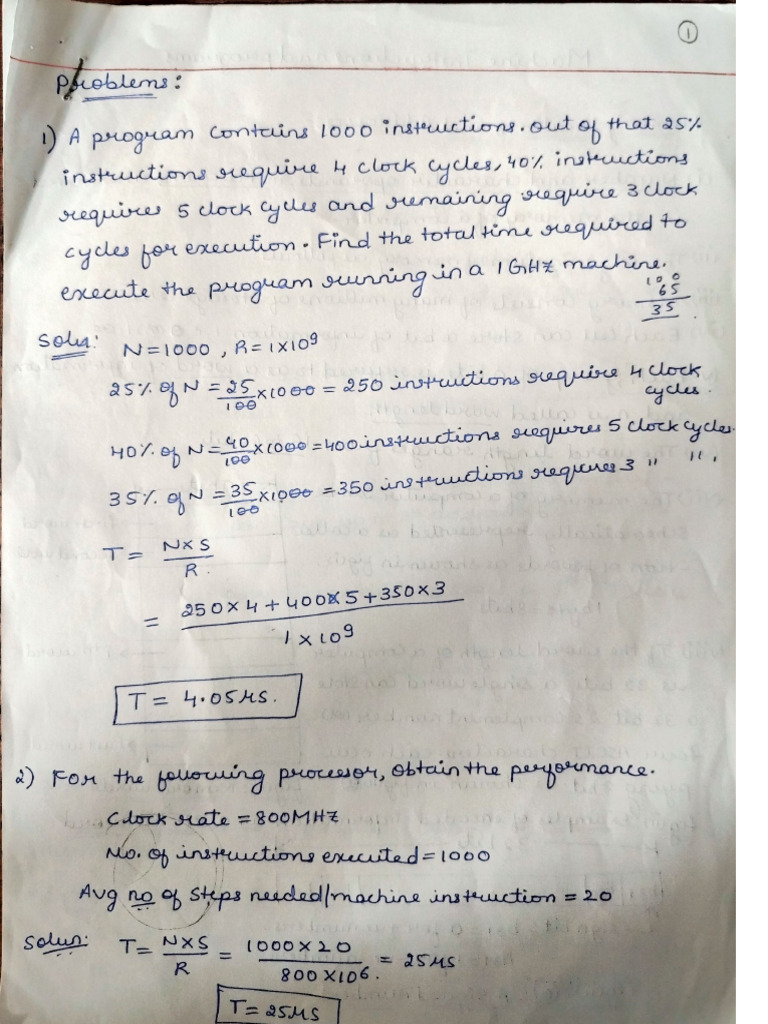 1
Problems:
1) A program contains 1000 instructions. out of that 25%
instructions require 4 clock cycles, 40% instructions
requires 5 clock cycles and remaining require 3 clock
cycles for execution. Find the total time required to
execute the program running in a 1 GHz machine.
100
65
35
Soln: N=1000, R=1×10⁹
25% of N = 25/100 ×1000 = 250 instructions require 4 clock
cycles.
40% of N = 40/100 ×1000 = 400 instructions requires 5 clock cycles.
35% of N = 35/100 ×1000 = 350 instructions requires 3 " ".
T = N×S/R.
= 250×4+400×5+350×3 / 1×10⁹
T = 4.05μs.
2) For the following processor, obtain the performance.
Clock rate = 800MHz
No. of instructions executed = 1000
Avg no of steps needed/machine instruction = 20
Solun: T = N×S/R = 1000×20/800×10⁶. = 25μs
T = 25μs